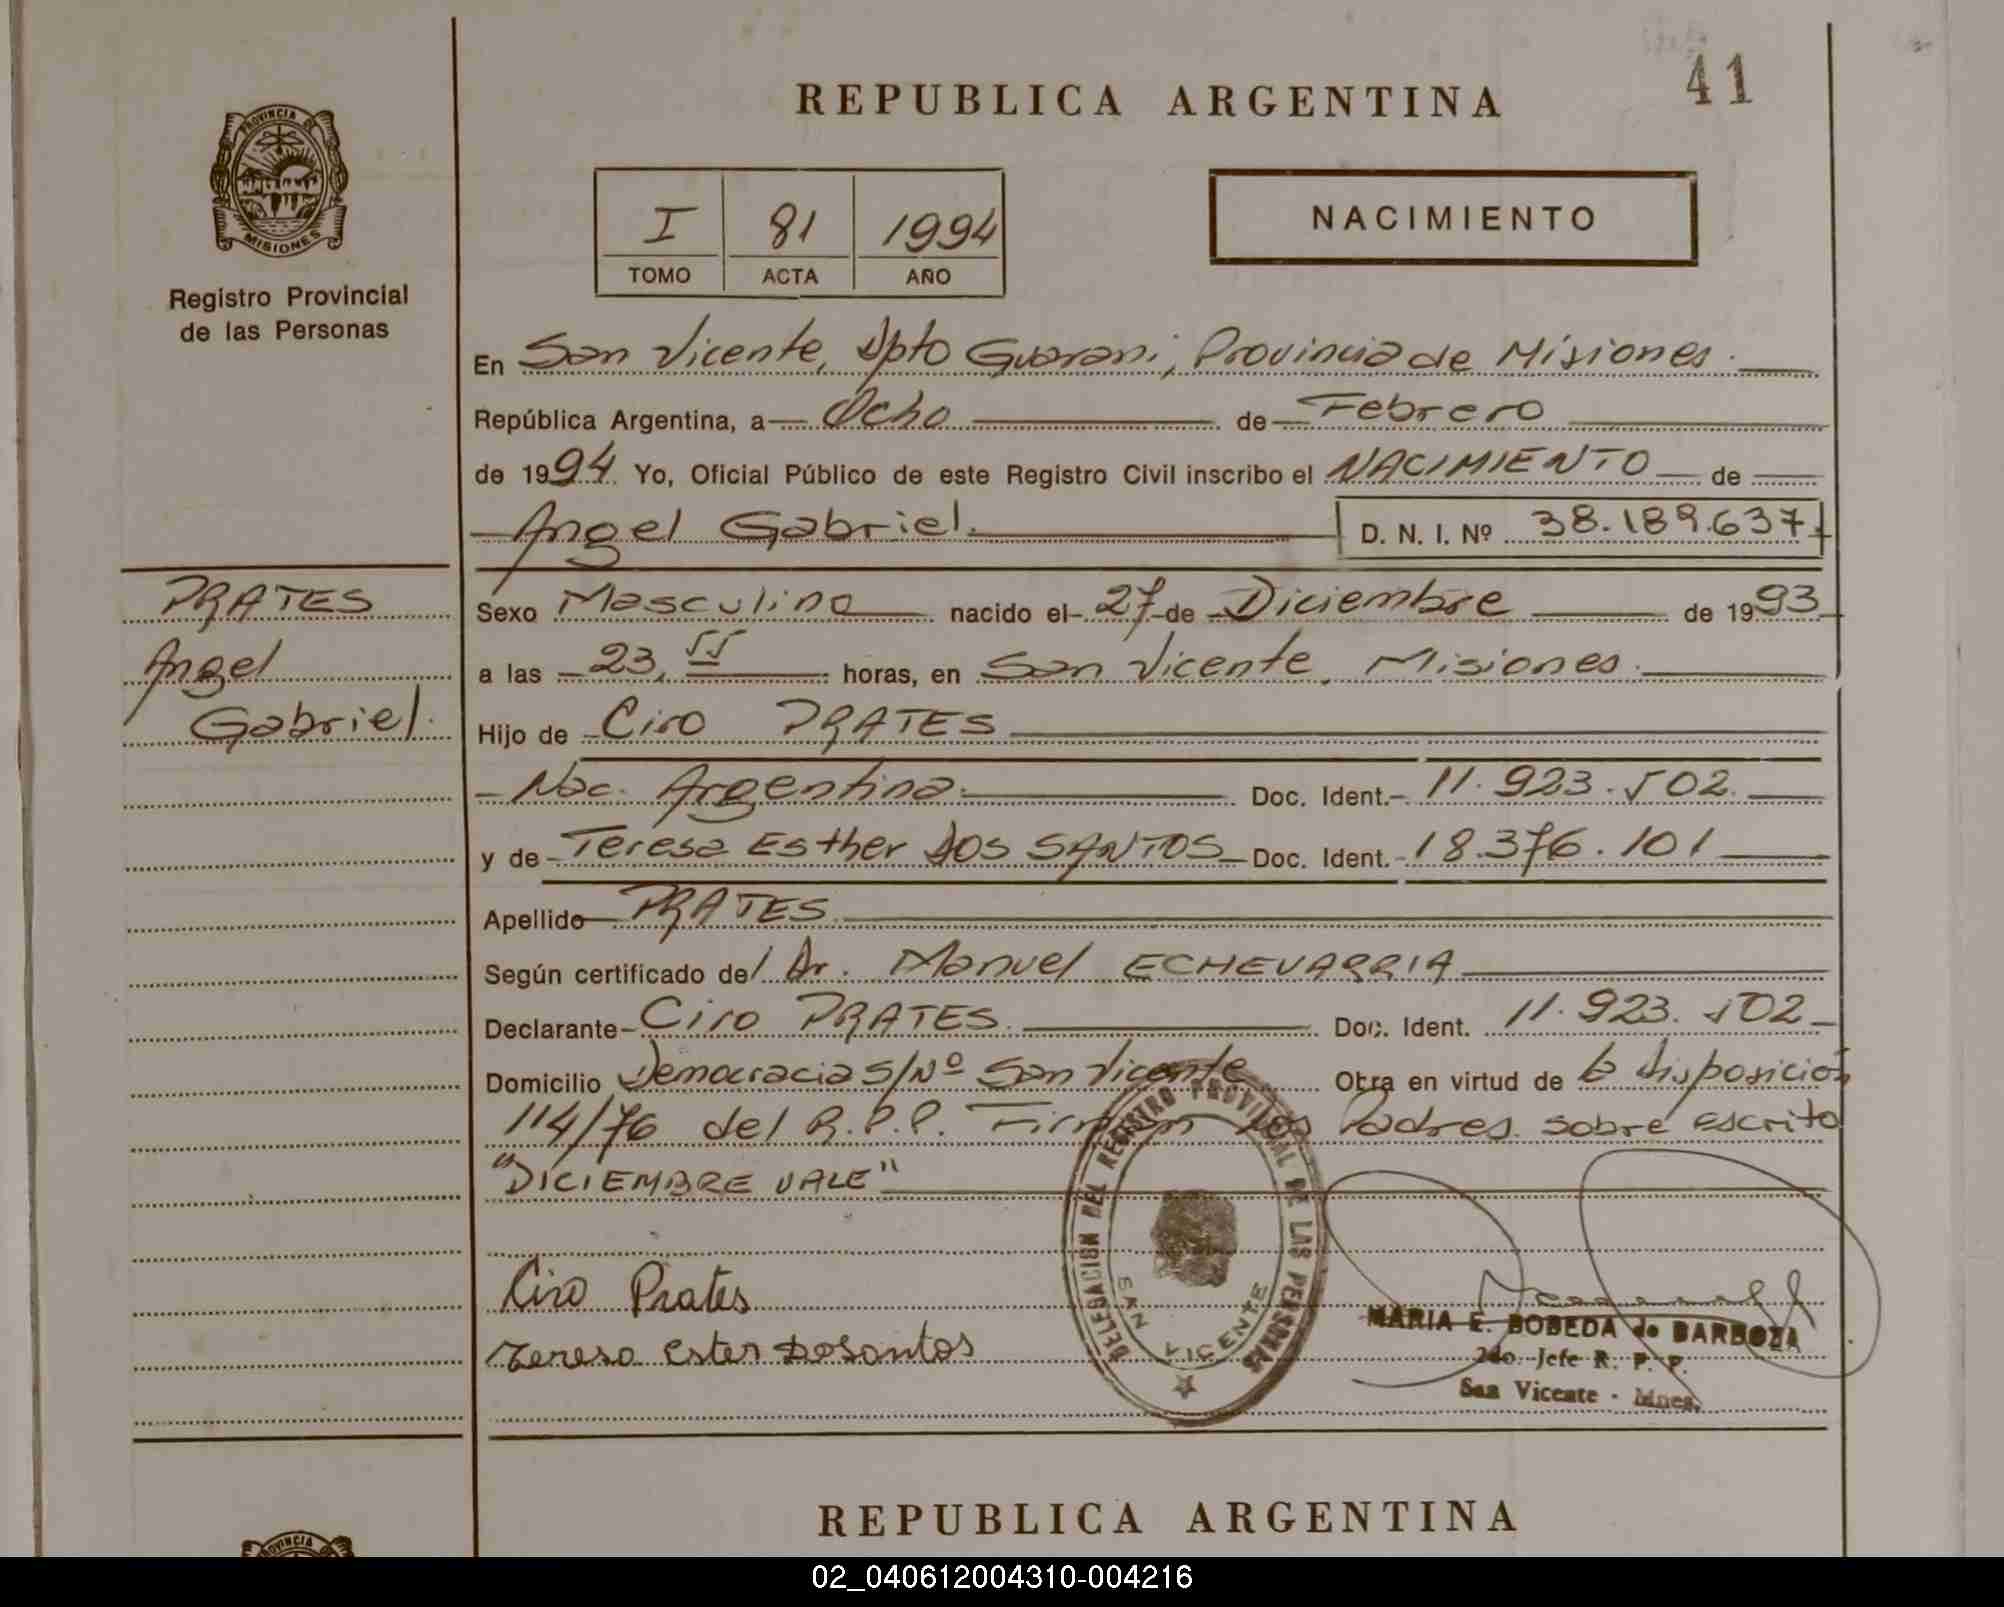 41
REPUBLICA ARGENTINA
PROVINCIA DE
MISIONES
Registro Provincial
de las Personas
I 81 1994
TOMO ACTA AÑO
NACIMIENTO
En San Vicente, Dpto Guarani, Provincia de Misiones.
República Argentina, a Ocho de Febrero
de 1994. Yo, Oficial Público de este Registro Civil inscribo el NACIMIENTO de
Angel Gabriel. D. N. I. Nº 38.189.637
PRATES
Angel
Gabriel.
Sexo Masculino nacido el 27 de Diciembre de 1993
a las 23,55 horas, en San Vicente, Misiones.
Hijo de Ciro PRATES
Nac. Argentina. Doc. Ident. 11.923.502.
y de Teresa Esther DOS SANTOS Doc. Ident. 18.376.101
Apellido PRATES
Según certificado del Dr. Manuel ECHEVARRIA
Declarante Ciro PRATES. Doc. Ident. 11.923.502
Domicilio Democracia S/Nº San Vicente Obra en virtud de la disposición
114/76 del R.P.P. Firman los Padres. sobre escrito
"DICIEMBRE VALE"
Ciro Prates
Tereso Ester Dosontos
DELEGACION DEL REGISTRO PROVINCIAL DE LAS PERSONAS
SAN VICENTE
MARIA E. BOBEDA de BARBOZA
2do. Jefe R. P. P.
San Vicente - Mnes.
REPUBLICA ARGENTINA
PROVINCIA DE
02_040612004310-004216